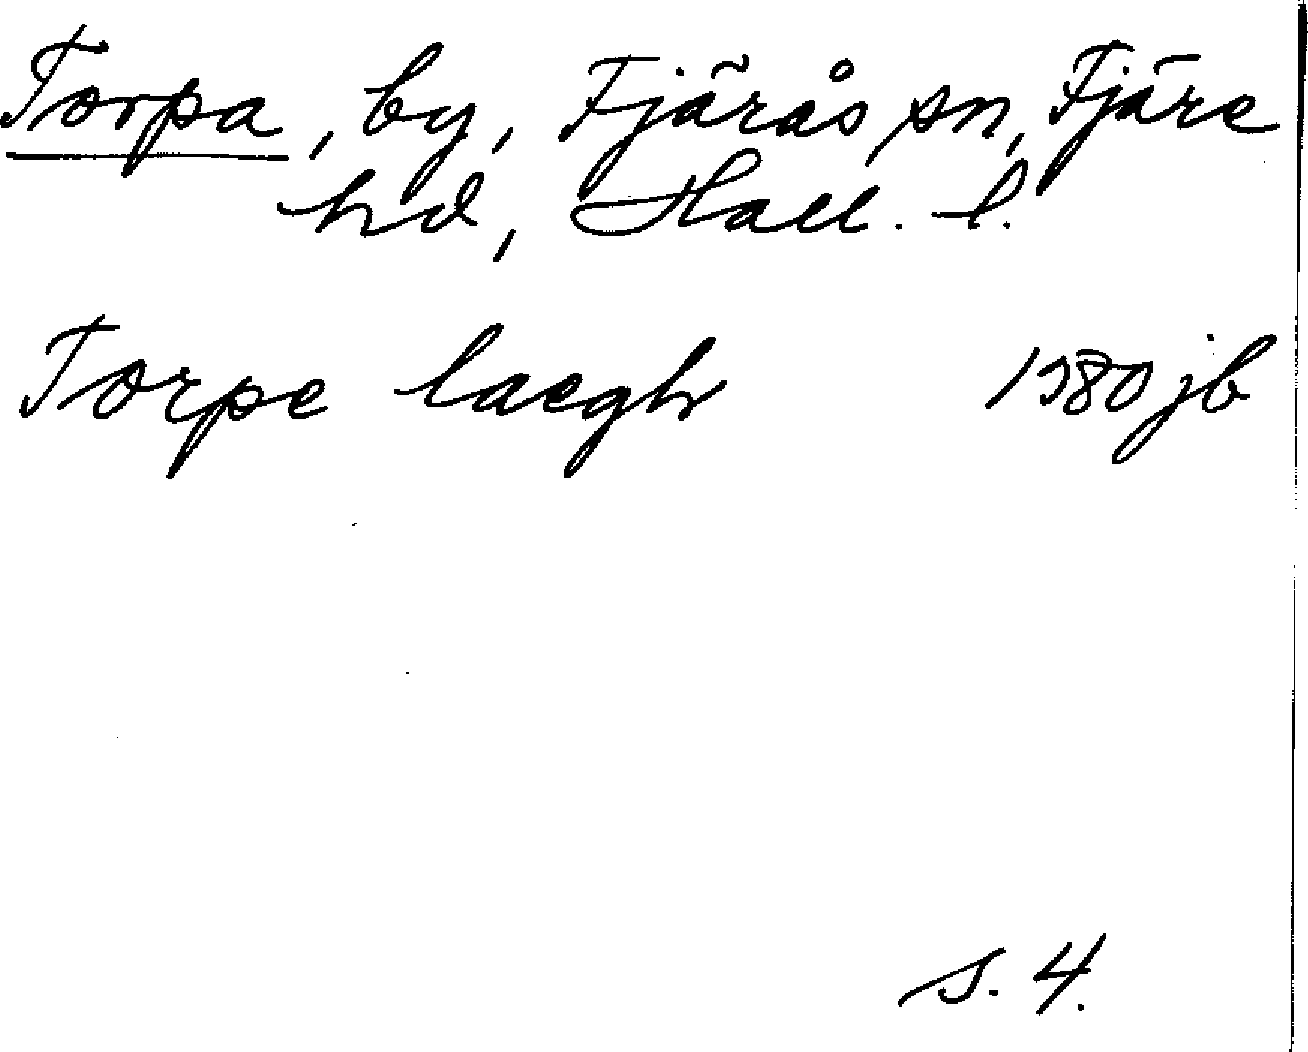 Torpa, by, Fjärås sn, Fjäre
hd, Hall. l.
Torpe laegh 1580 jb
s. 4.